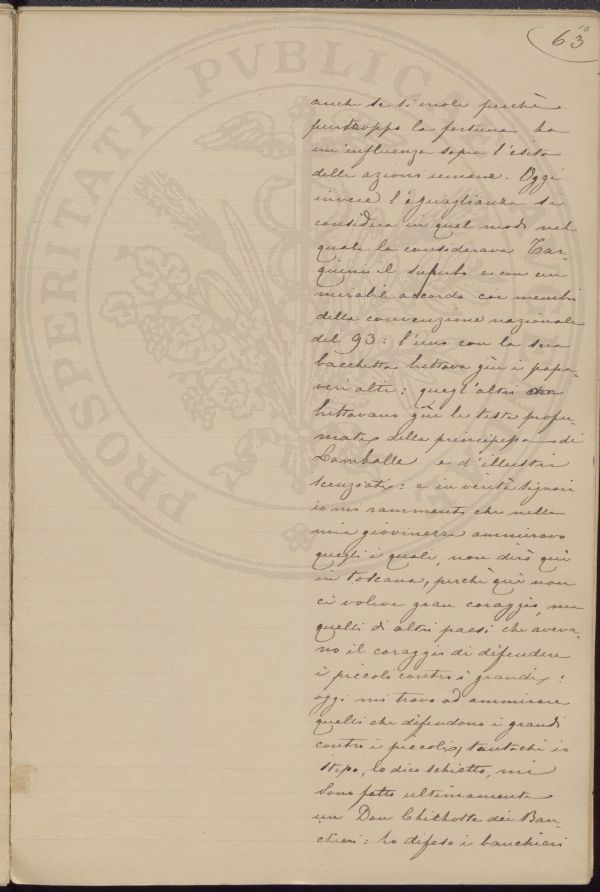 63
10
PROSPERITATI PVBLICAE
anche se si vuole perchè
purtroppo la fortuna ha
un'influenza sopra l'esito
delle azioni umane. Oggi
invece l'eguaglianza si
considera in quel modo nel
quale la considerava Tar-
quinio il superbo e con un
mirabile accordo coi membri
della convenzione nazionale
del 93: l'uno con la sua
bacchetta buttava giù i papa-
veri alti: quegl'altri
buttavano giù le teste profu-
mate della principessa di
Lamballe e d'illustri
scenziati: e in verità signori
io mi rammento che nella
mia giovinezza ammiravo
quegli i quali, non dirò qui
in Toscana, perchè quì non
ci voleva gran coraggio, ma
quelli di altri paesi che aveva-
no il coraggio di difendere
i piccoli contro i grandi:
oggi mi trovo ad ammirare
quelli che difendono i grandi
contro i piccoli; tantochè io
stesso, lo dico schietto, mi
sono fatto ultimamente
un Don Chichotte dei Ban-
chieri: ho difeso i banchieri